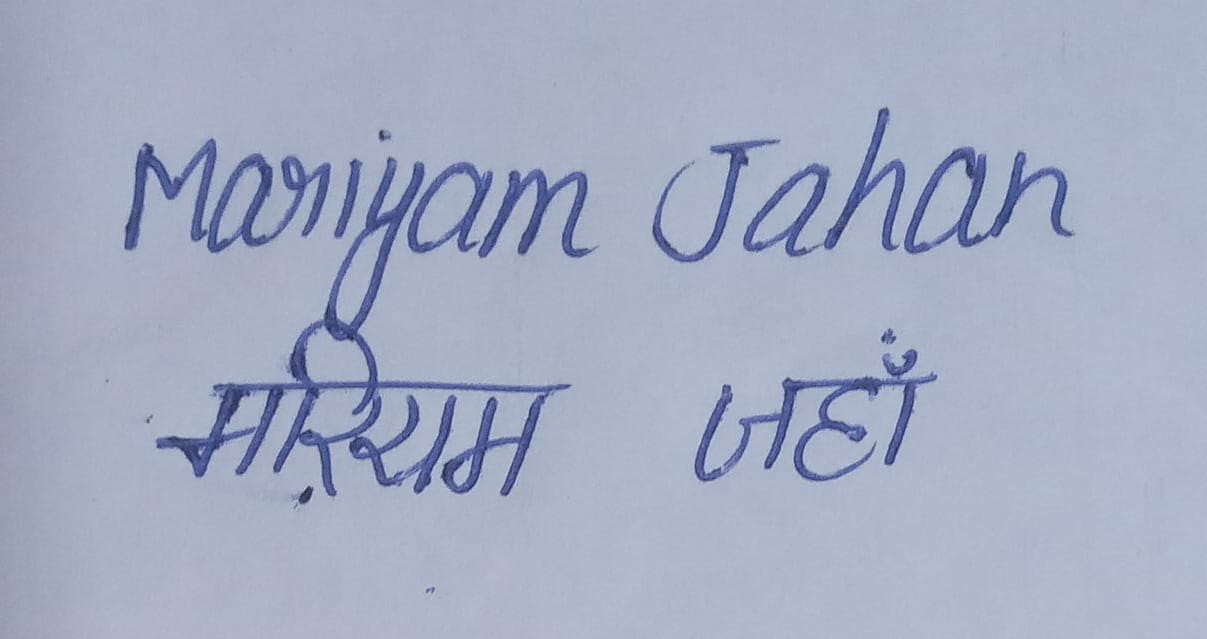 Mariyam Jahan
मरियम जहाँ